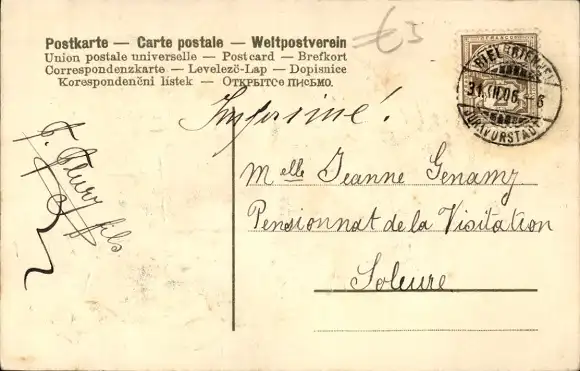 Postkarte — Carte postale — Weltpostverein
Union postale universelle — Postcard — Brefkort
Correspondenzkarte — Levelező-Lap — Dopisnice
Korespondenční lístek — Открытое письмо.
£3
31.XII.06. 6
2
Imprimé!
Melle Jeanne Genamy
Pensionnat de la Visitation
Soleure
fils